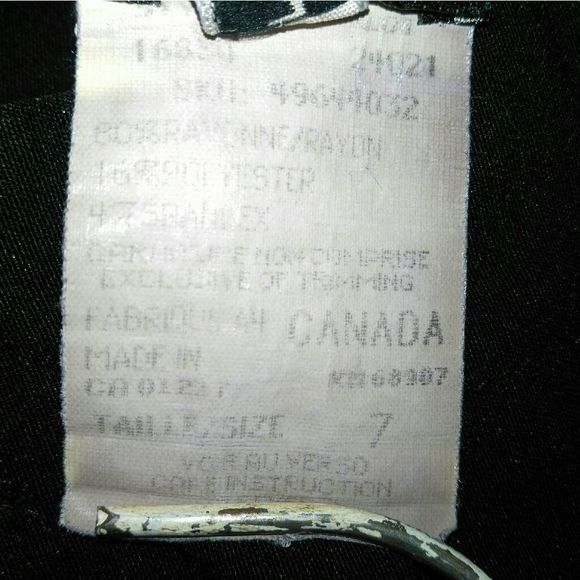 24021
SKU: 49644032
80% RAYONNE/RAYON
16% POLYESTER
4% SPANDEX
GARNITURE NON COMPRISE
EXCLUSIVE OF TRIMMING
FABRIQUE AU CANADA
MADE IN
RN68907
TAILLE/SIZE 7
VOIR AU VERSO
CARE INSTRUCTION